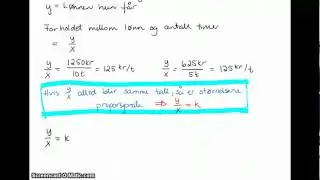 y = Lønnen hun får
Forholdet mellom lønn og antall timer
= y/x
y/x = 1250kr/10t = 125kr/t y/x = 625kr/5t = 125kr/t
Hvis y/x alltid blir samme tall, så er størrelsene
proporsjonale ⇒ y/x = k
y/x = k
Screencast-O-Matic.com